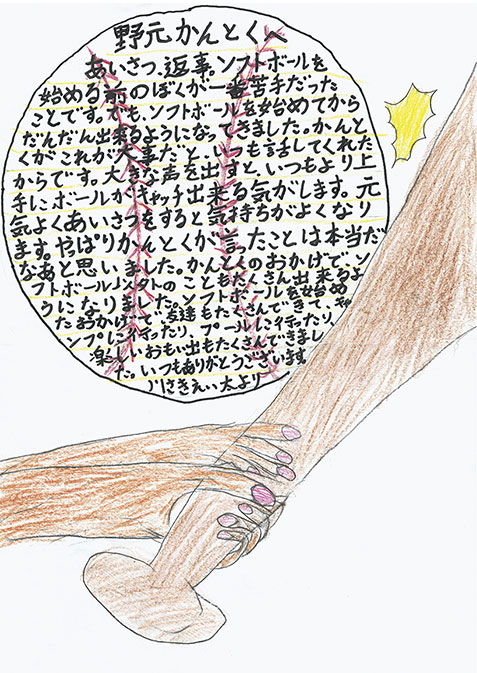 野元かんとくへ
あいさつ、返事。ソフトボールを
始める前のぼくが一番苦手だった
ことです。でも、ソフトボールを始めてから
だんだん出来るようになってきました。かんと
くがこれが大事だと、いつも話してくれた
からです。大きな声を出すと、いつもより上
手にボールがキャッチ出来る気がします。元
気よくあいさつをすると気持ちがよくなり
ます。やぱりかんとくが言ったことは本当だ
なあと思いました。かんとくのおかげで、ソ
フトボール以外のこともたくさん出来るよ
うになりました。ソフトボールを始め
たおかげで、友達もたくさんできて、キャ
ンプに行ったり、プールに行ったり、
楽しいおもい出もたくさんできまし
た。いつもありがとうございます。
えい太より